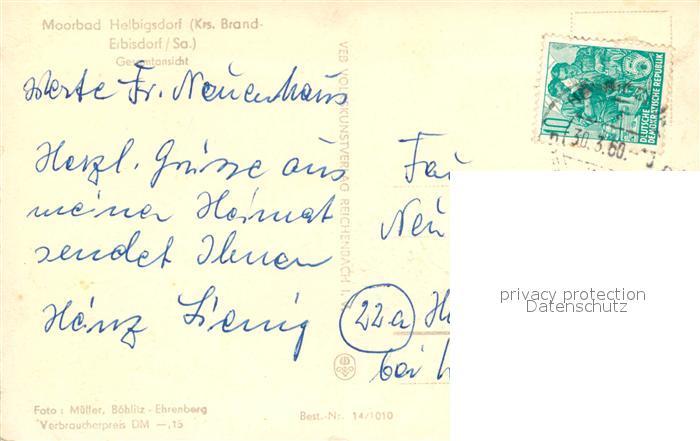 Moorbad Helbigsdorf (Krs. Brand-
Erbisdorf/Sa.)
Gesamtansicht
Werte Fr. Neuenhaus
Herzl. Grüsse aus
meiner Heimat
sendet Ihnen
Heinz Lienig
VEB VOLKSKUNSTVERLAG REICHENBACH I. V.
10
DEUTSCHE
DEMOKRATISCHE REPUBLIK
30.3.60.
Frau
Neu
22a
bei
privacy protection
Datenschutz
Foto: Müller, Böhlitz-Ehrenberg
Verbraucherpreis DM -,15
Best.-Nr. 14/1010